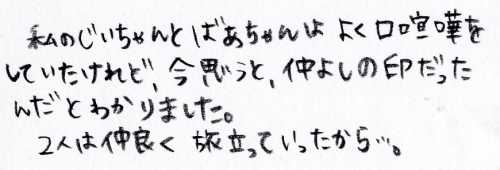 私のじいちゃんとばあちゃんはよく口喧嘩を
していたけれど、今思うと、仲よしの印だった
んだとわかりました。
2人は仲良く旅立っていったから…。